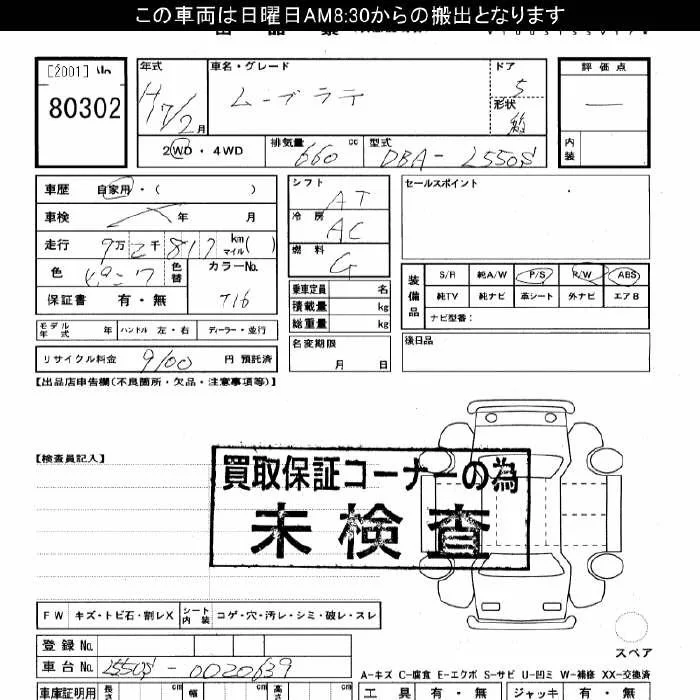 この車両は日曜日AM8:30からの搬出となります
[2001]
80302
年式
H17/2月
車名・グレード
ムーブラテ
ドア
5
形状
評価点
内装
2WD・4WD
排気量
660 cc
型式
DBA- L550S
車歴 自家用・( )
車検 年 月
走行 9万2千817 km マイル( )
色 ピンク 色替 カラーNo.
T16
保証書 有・無
モデル年式 年 ハンドル 左・右 ディーラー・並行
リサイクル料金 9100 円 預託済
シフト
AT
冷房
AC
燃料
G
乗車定員 名
積載量 kg
総重量 kg
名変期限
月 日
セールスポイント
装備品
S/R 純A/W P/S R/W ABS
純TV 純ナビ 革シート 外ナビ エアB
ナビ型番:
後日品
【出品店申告欄(不良箇所・欠品・注意事項等)】
【検査員記入】
買取保証コーナーの為
未検査
FW キズ・トビ石・割レX シート内装 コゲ・穴・汚レ・シミ・破レ・スレ
スペア
登録No.
車台No. L550S - 0020639
A-キズ C-腐食 E-エクボ S-サビ U-凹ミ W-補修 XX-交換済
車庫証明用 長さ cm 幅 cm 高さ cm
工具 有・無 ジャッキ 有・無